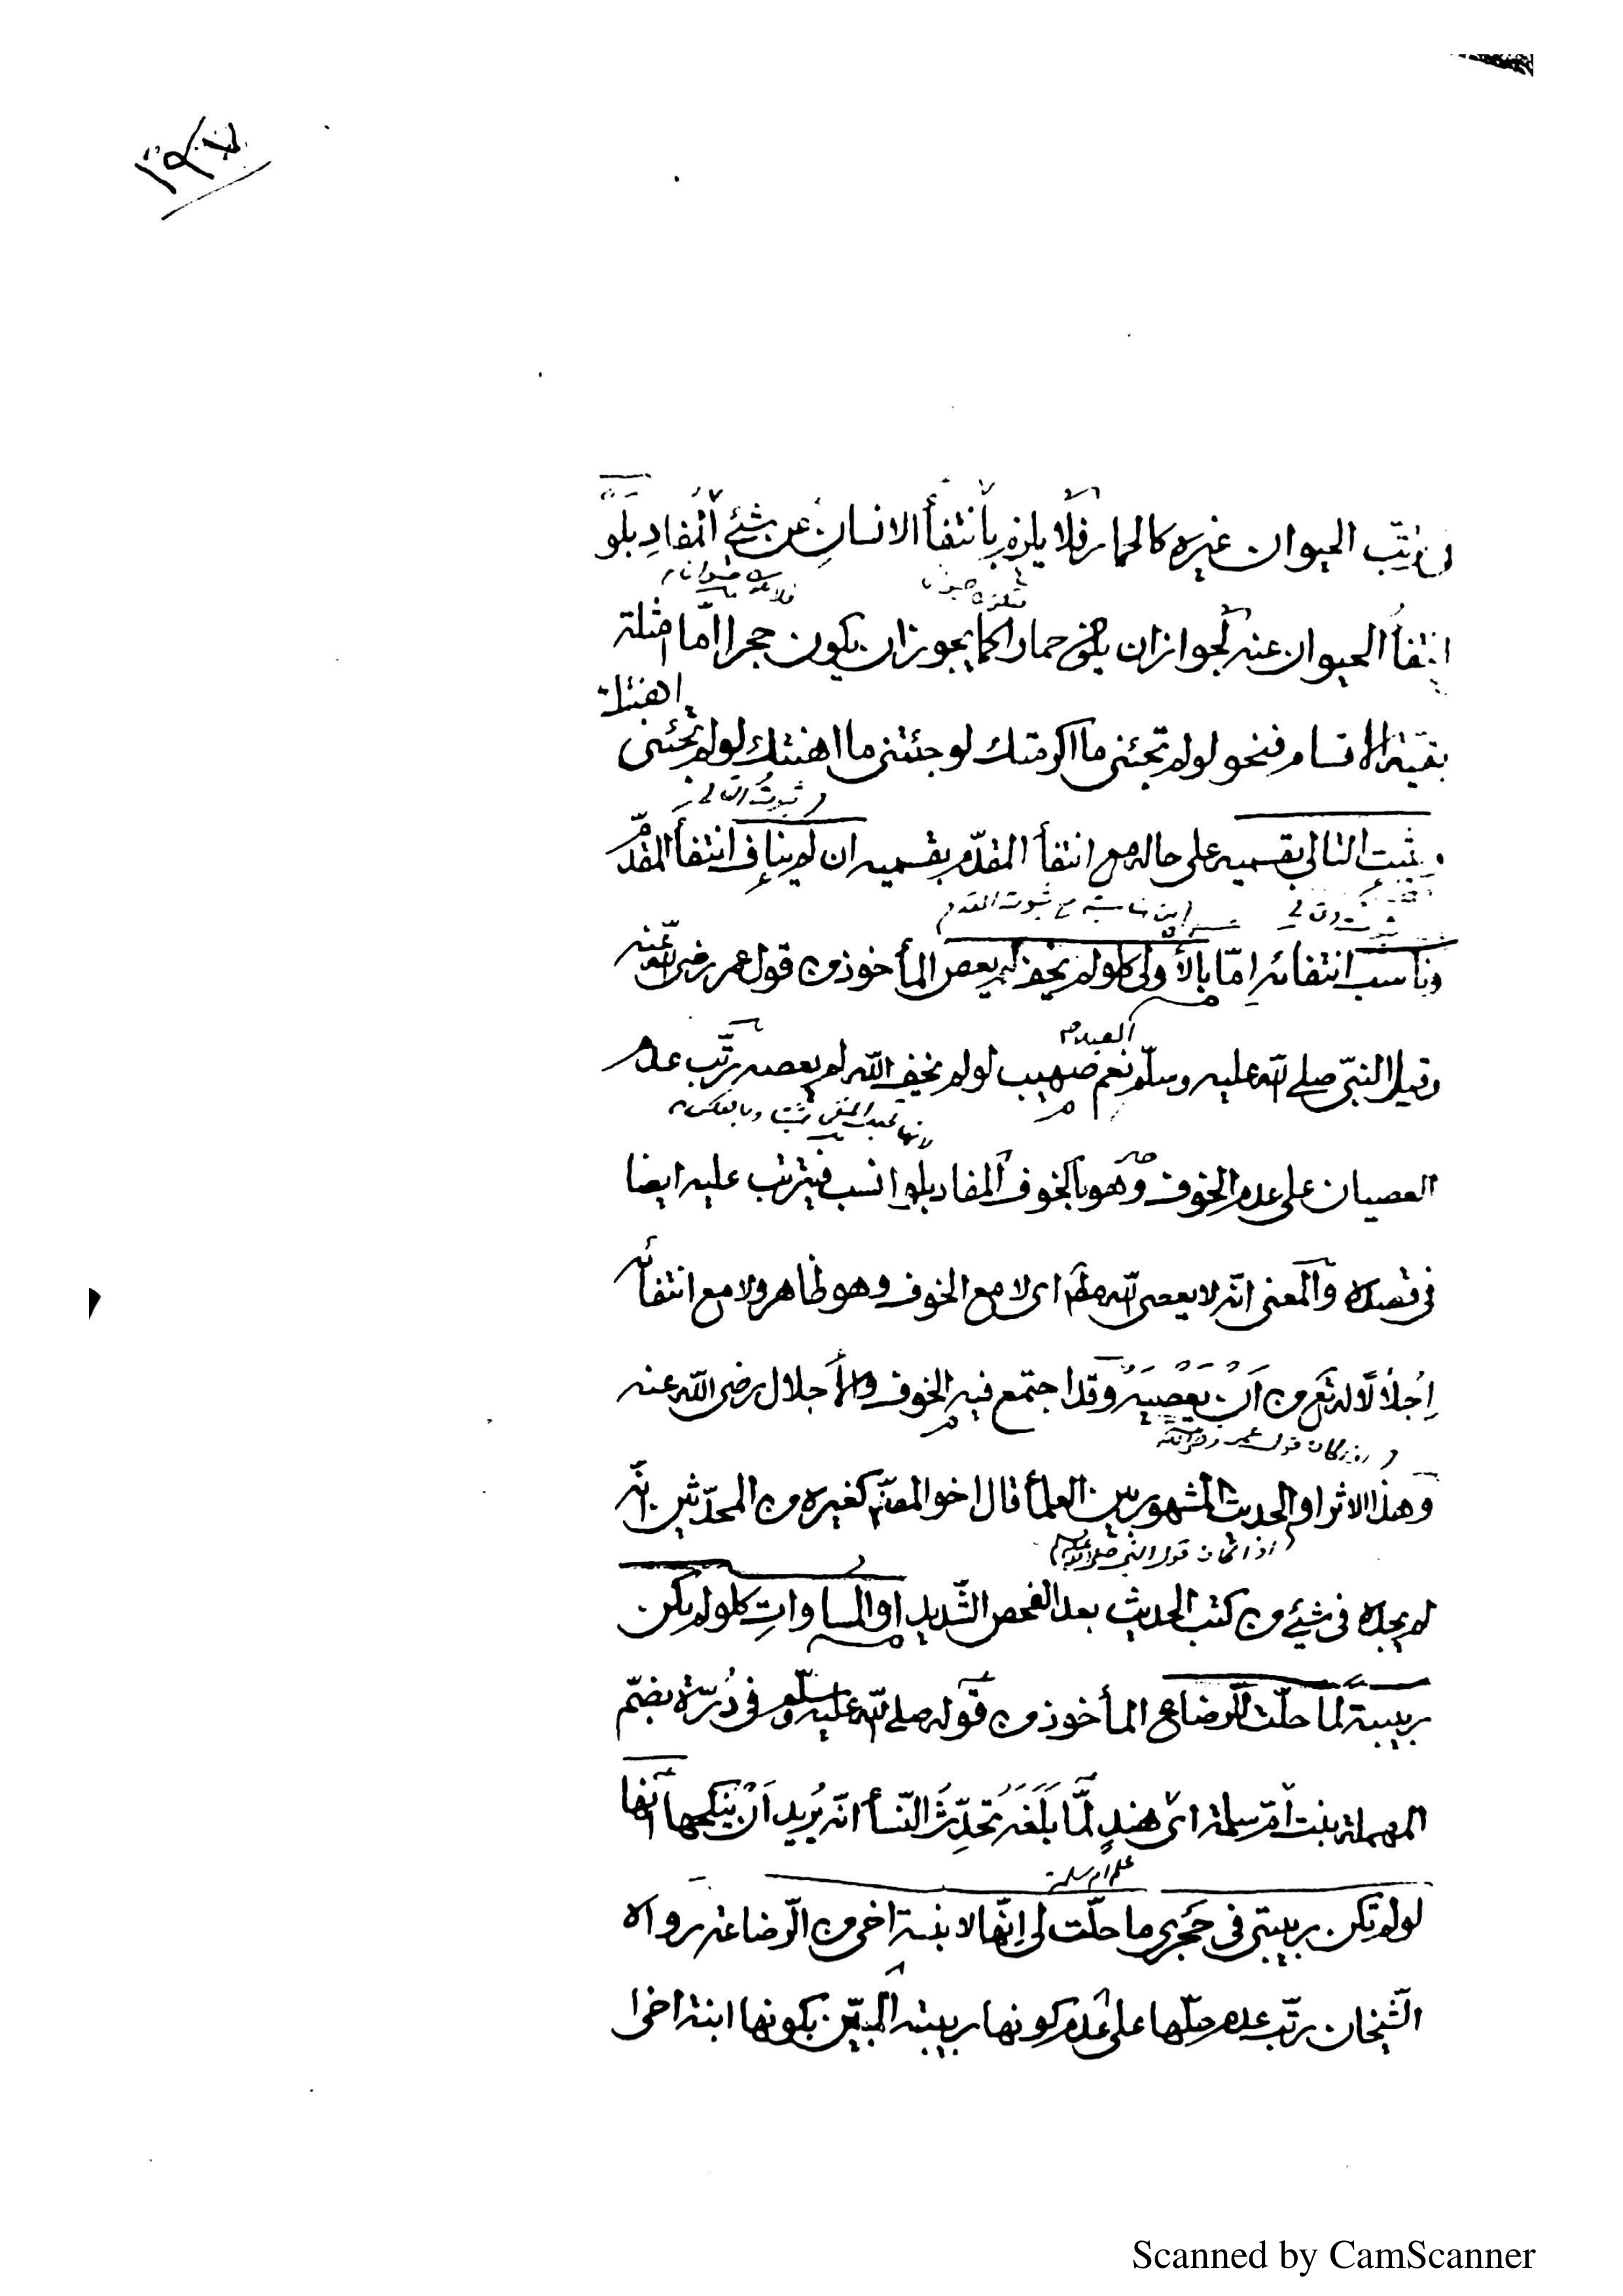 ترتيب الحيوان غيره كالحمار فلا يلزم بانتفأ الانسانِ عن شئٍ المفادِ بلو
انتفأ الحيوان عنه لجواز ان يكون حمارا كما يجوز ان يكون حجرا امّا امثلة
اهنتك
بقيّة الاقسام فنحو لو لم تجئنى ما اكرمتك لو جئتنى ما اهنتك لو لم تجئنى
ويثبت التالى بقسميه على حاله مع انتفأ المقدّم بقسميه ان لم ينافِ انتفأ المقدّم
ان ناسبه مع ثبوت المقدم
وناسب انتفائه اِمّا بالأولى كلو لم يخف لم يعص المأخوذ من قول عمر رضى الله عنه
وقيل النبىّ صلى الله عليه وسلّم نعم العبد صهيب لو لم يخف الله لم يعصه رتّب عدم
العصيان على عدم الخوف وهو بالخوف المفاد بلو انسب فيترتب عليه ايضا
فى قصده والمعنى انّه لا يعصى الله مطم اى لا مع الخوف وهو ظاهر ولا مع انتفائه
اِجلالًا له تع من اَنْ يَعْصِيَهُ وقد اجتمع فيه الخوف والأجلال رضى الله عنه
ان كان قول عمر رضى الله عنه
وهذا الاثر او الحديث المشهور بين العلمأ قال اخو المصنّف كغيره من المحدّثين انّه
اذا كان قول النبى صلى الله عليه وسلم
لم يجده فى شئ من كتب الحديث بعد الفحص الشّديد او المساواتِ كلو لم تكن
ربيبة لما حلّت للرّضاع المأخوذ من قوله صلى الله عليه وسلّم فى دُرّة بضمّ
المهملة بنت امّ سلمة اى هندٍ لَمَّا بَلَغَهُ تحدّثُ النّسأ انّه يُريد اَنْ يَنكحها انّها
علم ام سلمة
لو لم تكن ربيبتى فى حَجرى ما حلّت لى اِنّها لابنة اخى من الرّضاعة رواه
الشّيخان رتّب عدم حلّها على عدم كونها ربيبته المبيّن بكونها ابنة اخى ا
Scanned by CamScanner